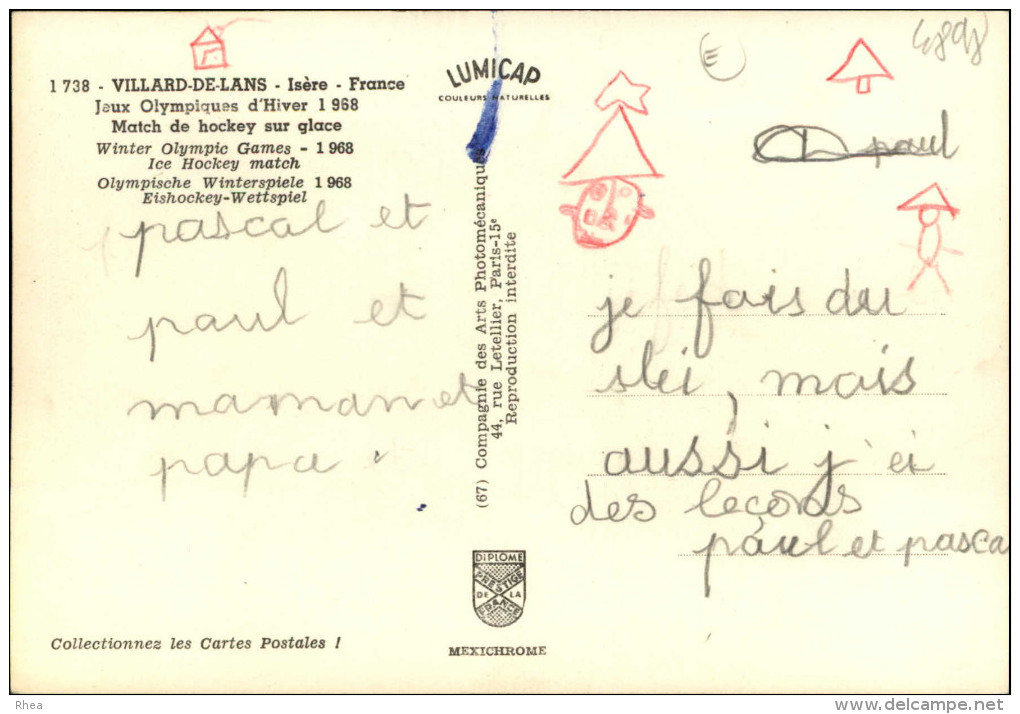 1 738 - VILLARD-DE-LANS - Isère - France
Jeux Olympiques d'Hiver 1 968
Match de hockey sur glace
Winter Olympic Games - 1 968
Ice Hockey match
Olympische Winterspiele 1 968
Eishockey-Wettspiel
pascal et
paul et
maman et
papa.
LUMICAP
COULEURS NATURELLES
(67) Compagnie des Arts Photomécaniques
44, rue Letellier, Paris-15e
Reproduction interdite
paul
je fais du
ski, mais
aussi j'ei
des leçons
paul et pasca
DIPLOME
PRESTIGE
DE LA
FRANCE
MEXICHROME
Collectionnez les Cartes Postales !
Rhea
www.delcampe.net